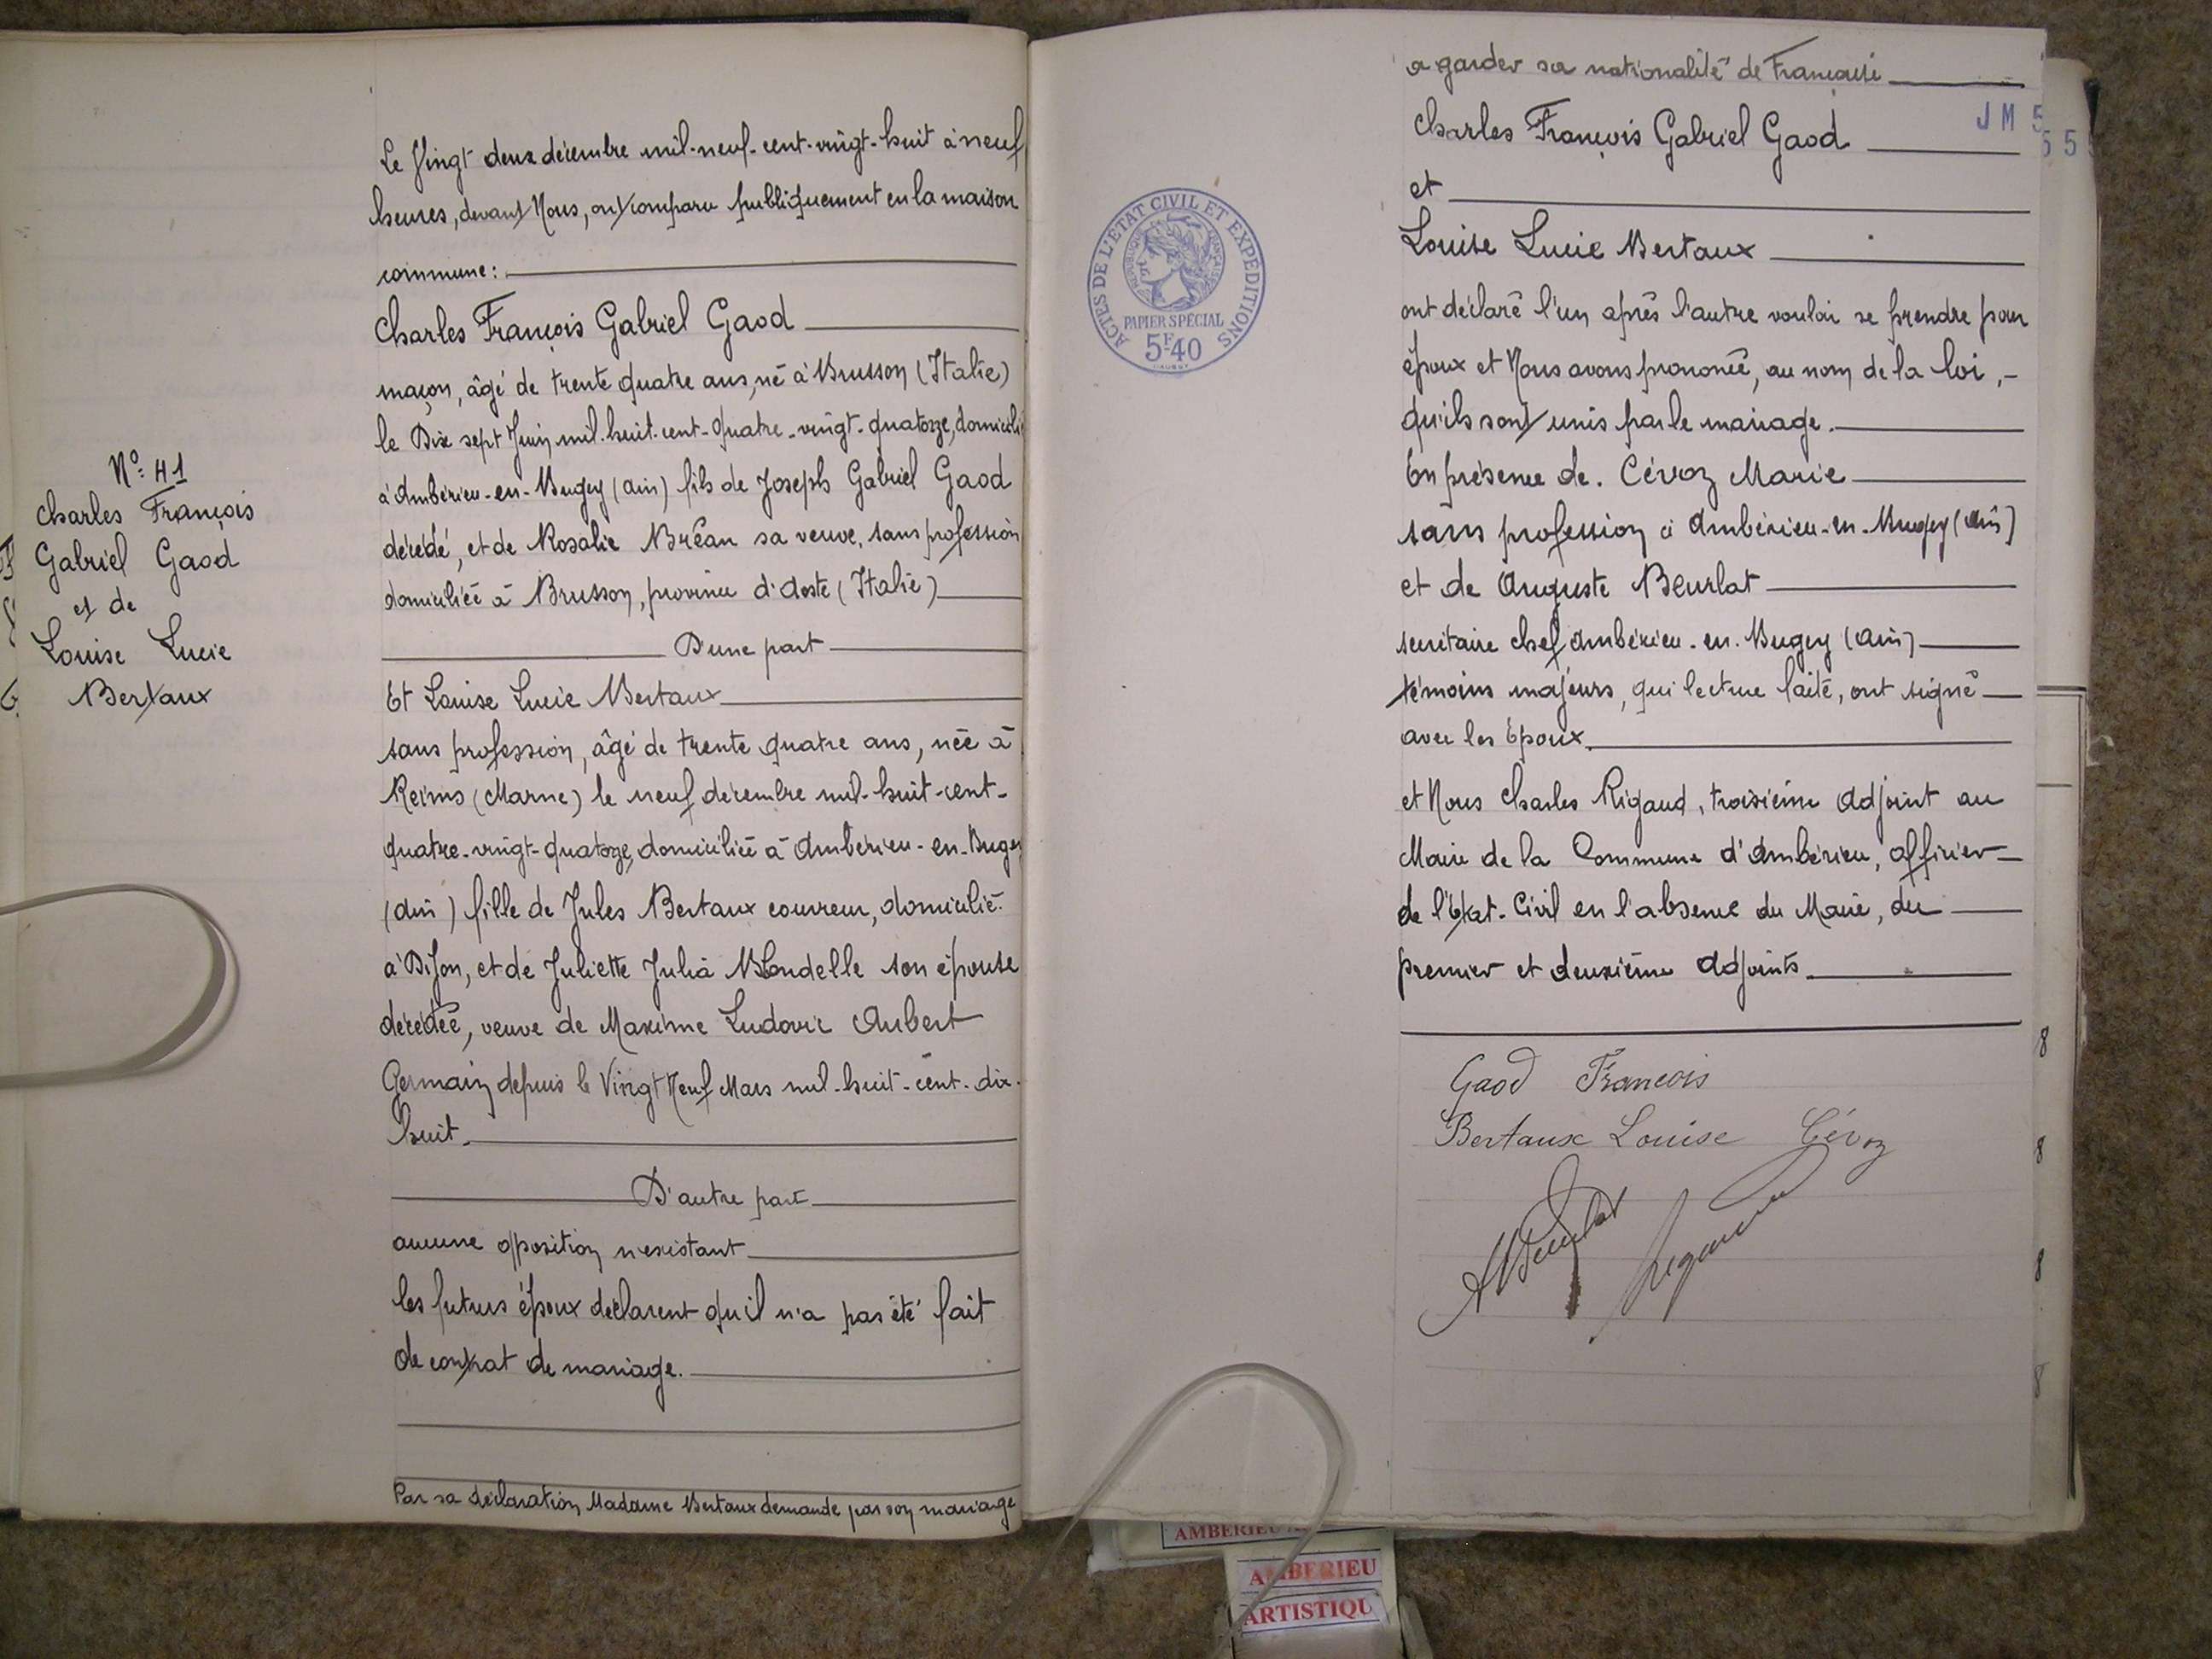 Nº: 41
Charles François
Gabriel Gaod
et de
Louise Lucie
Bertaux
Le Vingt deux décembre mil-neuf-cent-vingt-huit à neuf
heures, devant Nous, ont comparu publiquement en la maison
commune:
Charles François Gabriel Gaod
maçon, âgé de trente quatre ans, né à Brusson (Italie)
le Dix sept Juin mil-huit-cent-quatre-vingt-quatorze, domicilié
à Ambérieu-en-Bugey (Ain) fils de Joseph Gabriel Gaod
décédé, et de Rosalie Bréan sa veuve, sans profession
domiciliée à Brusson, province d'Aoste (Italie)
D'une part
Et Louise Lucie Bertaux
sans profession, âgé de trente quatre ans, née à
Reims (Marne) le neuf décembre mil-huit-cent-
quatre-vingt-quatorze, domiciliée à Ambérieu-en-Bugey
(Ain) fille de Jules Bertaux couvreur, domicilié
à Dijon, et de Juliette Julia Blondelle son épouse
décédée, veuve de Maxime Ludovic Aubert
Germain depuis le Vingt Neuf Mars mil-huit-cent-dix-
huit.
D'autre part
aucune opposition n'existant
les futurs époux déclarent qu'il n'a pas été fait
de contrat de mariage.
Par sa déclaration, Madame Bertaux demande par son mariage
a garder sa nationalité de Française
JM 5
55
Charles François Gabriel Gaod
et
Louise Lucie Bertaux
ont déclaré l'un après l'autre vouloir se prendre pour
époux et Nous avons prononcé, au nom de la loi,-
qu'ils sont unis par le mariage.
En présence de. Cévoz Marie
sans profession à Ambérieu-en-Bugey (Ain)
et de Auguste Beurlat
secrétaire chef Ambérieu-en-Bugey (Ain)
témoins majeurs, qui lecture faite, ont signé
avec les Epoux.
et Nous Charles Rigaud, troisième Adjoint au
Maire de la Commune d'Ambérieu, officier
de l'Etat-Civil en l'absence du Maire, du
premier et deuxième adjoints.
Gaod François
Bertaux Louise Cévoz
ABeurlat Rigaud
ACTES DE L'ETAT CIVIL ET EXPEDITIONS
REPUBLIQUE FRANÇAISE
PAPIER SPÉCIAL
5F40
8
8
8
8
AMBERIEU
AMBERIEU
ARTISTIQU